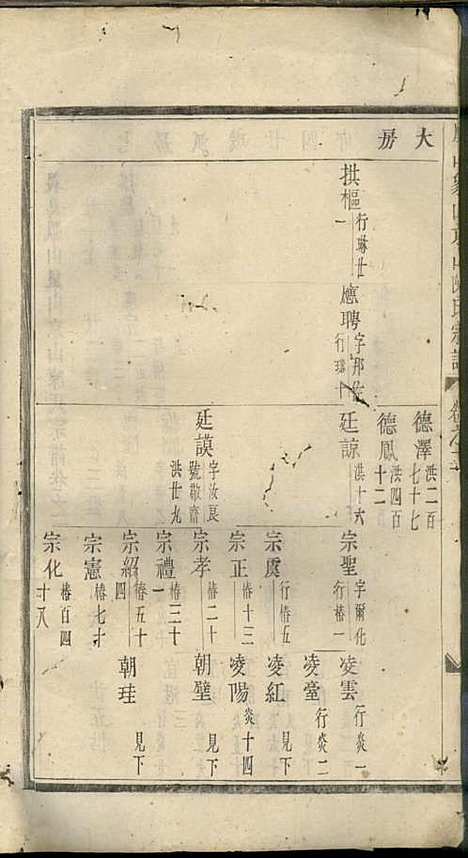 大房
拱樞 行琳廿一
應聘 字邦佐 行璿十
德澤 洪二百七十七
德鳳 洪四百十二
廷諒 洪十六
廷謨 字汝良 號敬齋 洪廿九
宗聖 字爾化 行椿一
宗虞 行椿五
宗正 椿十三
宗孝 椿二十
宗禮 椿二十一
宗紹 椿五十四
宗憲 椿七十
宗化 椿百四十八
凌雲 行炎一 見下
凌臺 行炎二
凌紅 見下
凌陽 炎十四
朝璧 見下
朝珪 見下